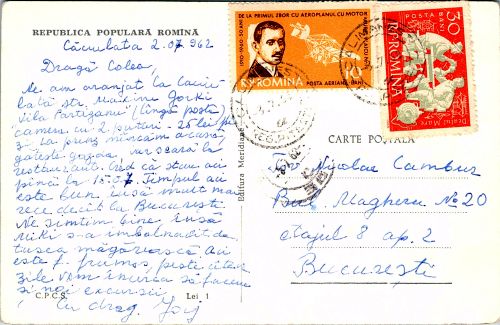 REPUBLICA POPULARĂ ROMÎNĂ
Căciulata 2.07.962
Dragă Colea,
Ne am aranjat la Căciu
lata str. Maxim Gorki
Vila Partizanu (lîngă poștă)
cameră cu 2 paturi - 25 lei pe
zi. La prînz mîncăm acasă,
gătește gazda, iar seara la
restaurant. Cred că stau aci
pînă la 15.07. Timpul aci
este bun, însă mult mai
rece decît la București
Ne simțim bine însă
Miki s-a îmbolnăvit de
tusea măgărească. Aci
este f. frumos, peste cîteva
zile vom încerca să facem
și noi excursii.
Cu drag.
C.P.C.S.
Lei 1
Editura Meridiane
1910-1960 50 ANI DE LA PRIMUL ZBOR CU AEROPLANUL CU MOTOR
R.P. ROMINA
POSTA AERIANA
BANI
POSTA
30 BANI
R.P. ROMINA
Dealul Mare
CARTE POȘTALĂ
Nicolae Cambur
Bul. Magheru No 20
etajul 8 ap. 2
București